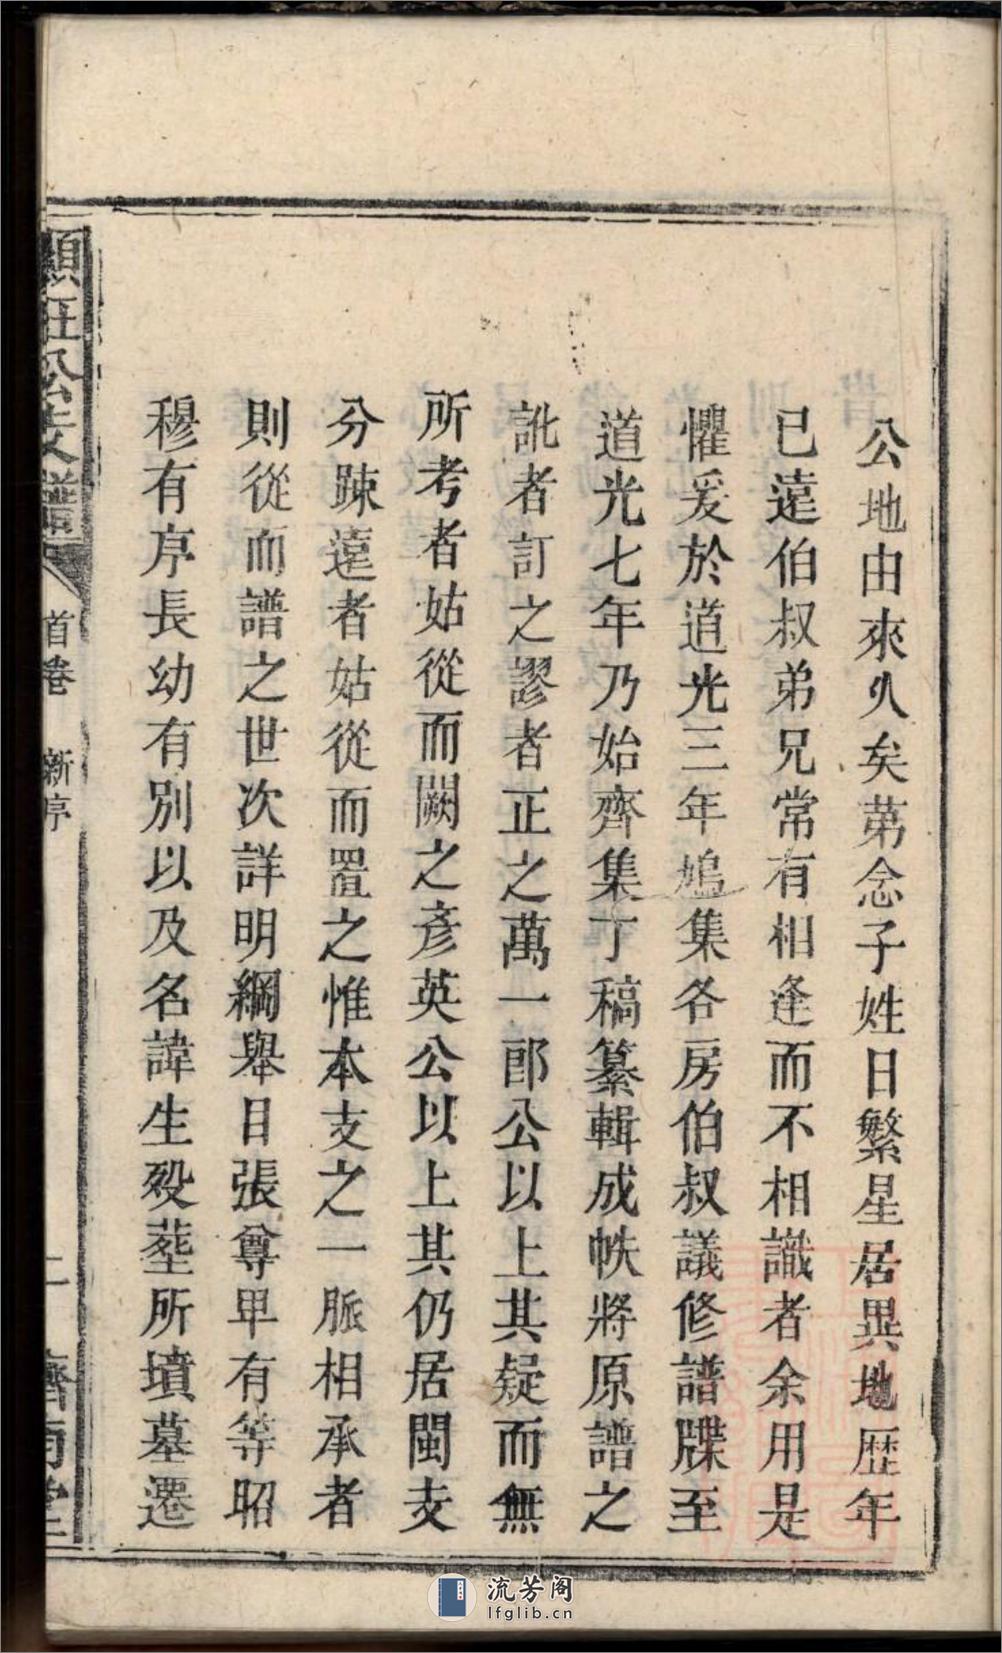 公地由來久矣苐念子姓日繁星居異地歷年
已遠伯叔弟兄常有相逢而不相識者余用是
懼爰於道光三年鳩集各房伯叔議修譜牒至
道光七年乃始齊集丁稿纂輯成帙將原譜之
訛者訂之謬者正之萬一郎公以上其疑而無
所考者姑從而闕之彥英公以上其仍居閩支
分踈遠者姑從而置之惟本支之一脈相承者
則從而譜之世次詳明綱舉目張尊卑有等昭
穆有序長幼有別以及名諱生殁塟所墳墓遷
公支譜
首卷
新序
二
濟南堂
流芳阁
lfglib.cn